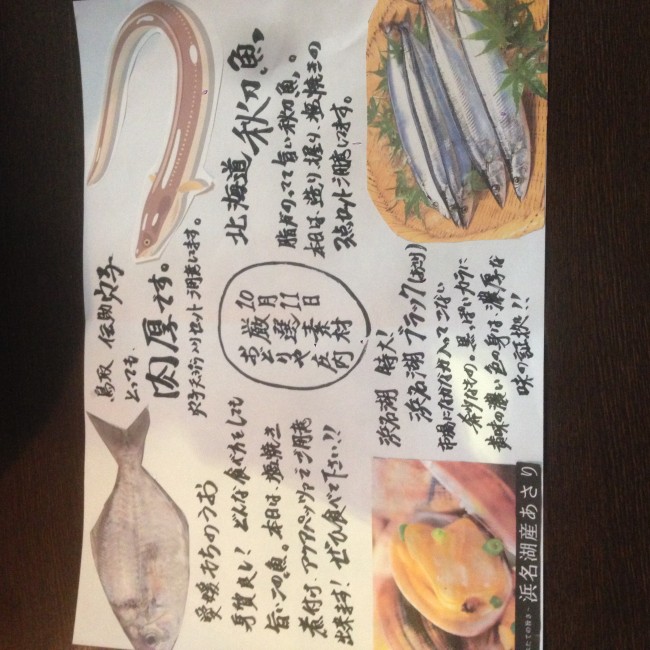 鳥取 伝助穴子
とっても、
肉厚です。
北海道 秋刀魚
脂がのってて旨い秋刀魚。
本日は、造り、握り、塩焼きの
3点セットご用意してます。
10月11日
厳選素材
おどりや 庄内
愛媛 おちのうお
身質良し! どんな食べ方をしても
旨いこの魚。本日は、塩焼き
煮付け、アクアパッツァご用意
出来ます! ぜひ食べて下さい!!
浜名湖 特大!
浜名湖ブラック(あさり)
市場になかなか入ってこない
希少なもの。黒っぽいカラに
黄味の濃い色の身は、濃厚な
味の証拠!!
浜名湖産あさり